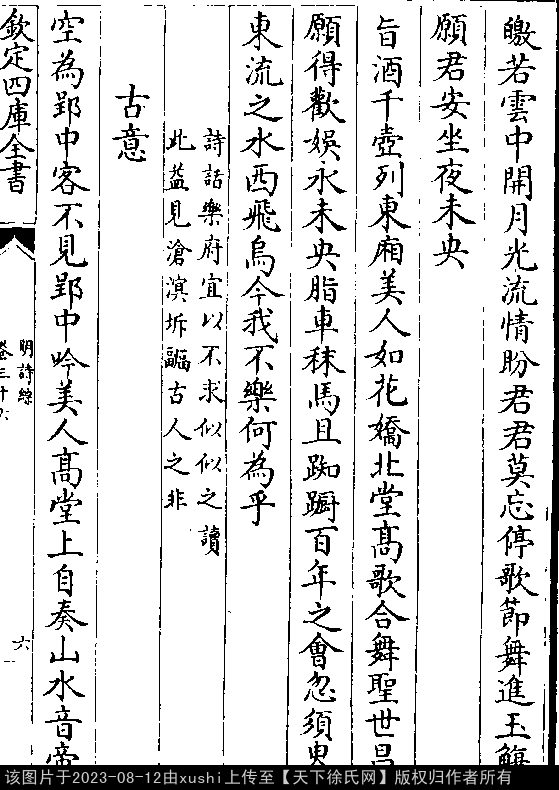 皦若雲中開月光流情盼君君莫忘停歌節舞進玉觴
願君安坐夜未央
旨酒千壺列東廂美人如花嬌北堂髙歌合舞聖世昌
願得歡娛永未央脂車秣馬且踟蹰百年之會忽須臾
東流之水西飛烏今我不樂何為乎
詩話樂府宜以不求似似之讀
此益見滄溟坼副古人之非
古意
空為郢中客不見郢中吟美人髙堂上自奏山水音
欽定四庫全書
明詩綜
卷三十
六
该图片于2023-08-12由xushi上传至【天下徐氏网】版权归作者所有